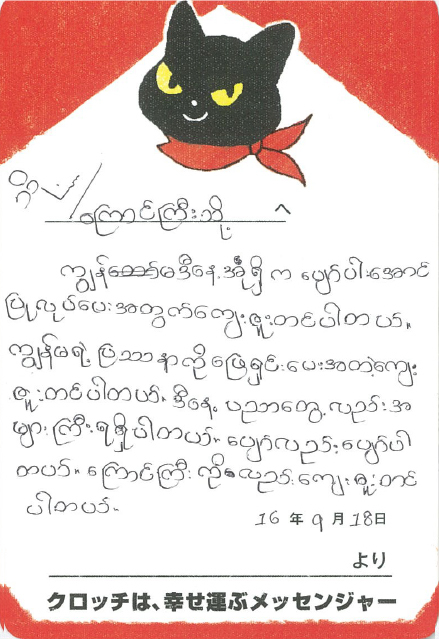 ကြောင်ကြီးသို့ へ
ကျွန်မဒီနေ့ အိုရှိ က ပျော်ပါးအောင်
ပြုလုပ်ပေးအတွက်ကျေးဇူးတင်ပါတယ်။
ကျွန်မရဲ့ ပြဿနာကိုဖြေရှင်းပေးအတွဲ့ကျေး
ဇူးတင်ပါတယ်။ ဒီနေ့ ပညာတွေ့လည်းအ
များကြီးရရှိပါတယ်။ ပျော်လည်းပျော်ပါ
တယ်။ ကြောင်ကြီး ကိုလည်းကျေးဇူးတင်
ပါတယ်။
16 年 9 月 18日
より
クロッチは、幸せ運ぶメッセンジャー